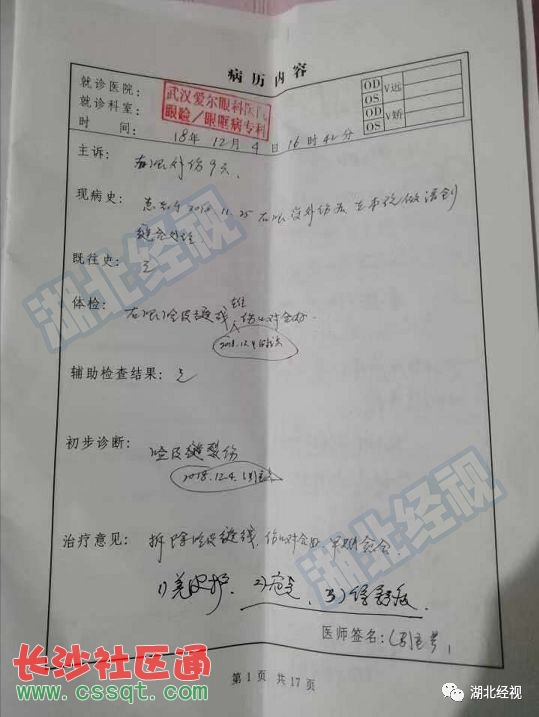 病历内容
就诊医院：
就诊科室：
武汉爱尔眼科医院
眼睑/眼眶病专科
时 间： 18年 12月 4日 16时 42分
OD V远
OS
OD V矫
OS
主诉： 右眼外伤9天.
现病史： 患者于2018.11.25 右眼 外伤后 在本院做清创
缝合处理
既往史： 无
体检： 右眼睑皮缝线在 伤口对合好.
2018.12.4
辅助检查结果： 无
初步诊断： 睑皮 裂伤
2018.12.4.
治疗意见： 拆除睑皮缝线, 伤口对合 愈合.
1) 2) 3)
医师签名：
第 1 页 共 17 页
湖北经视
湖北经视
长沙社区通
www.cssqt.com
湖北经视